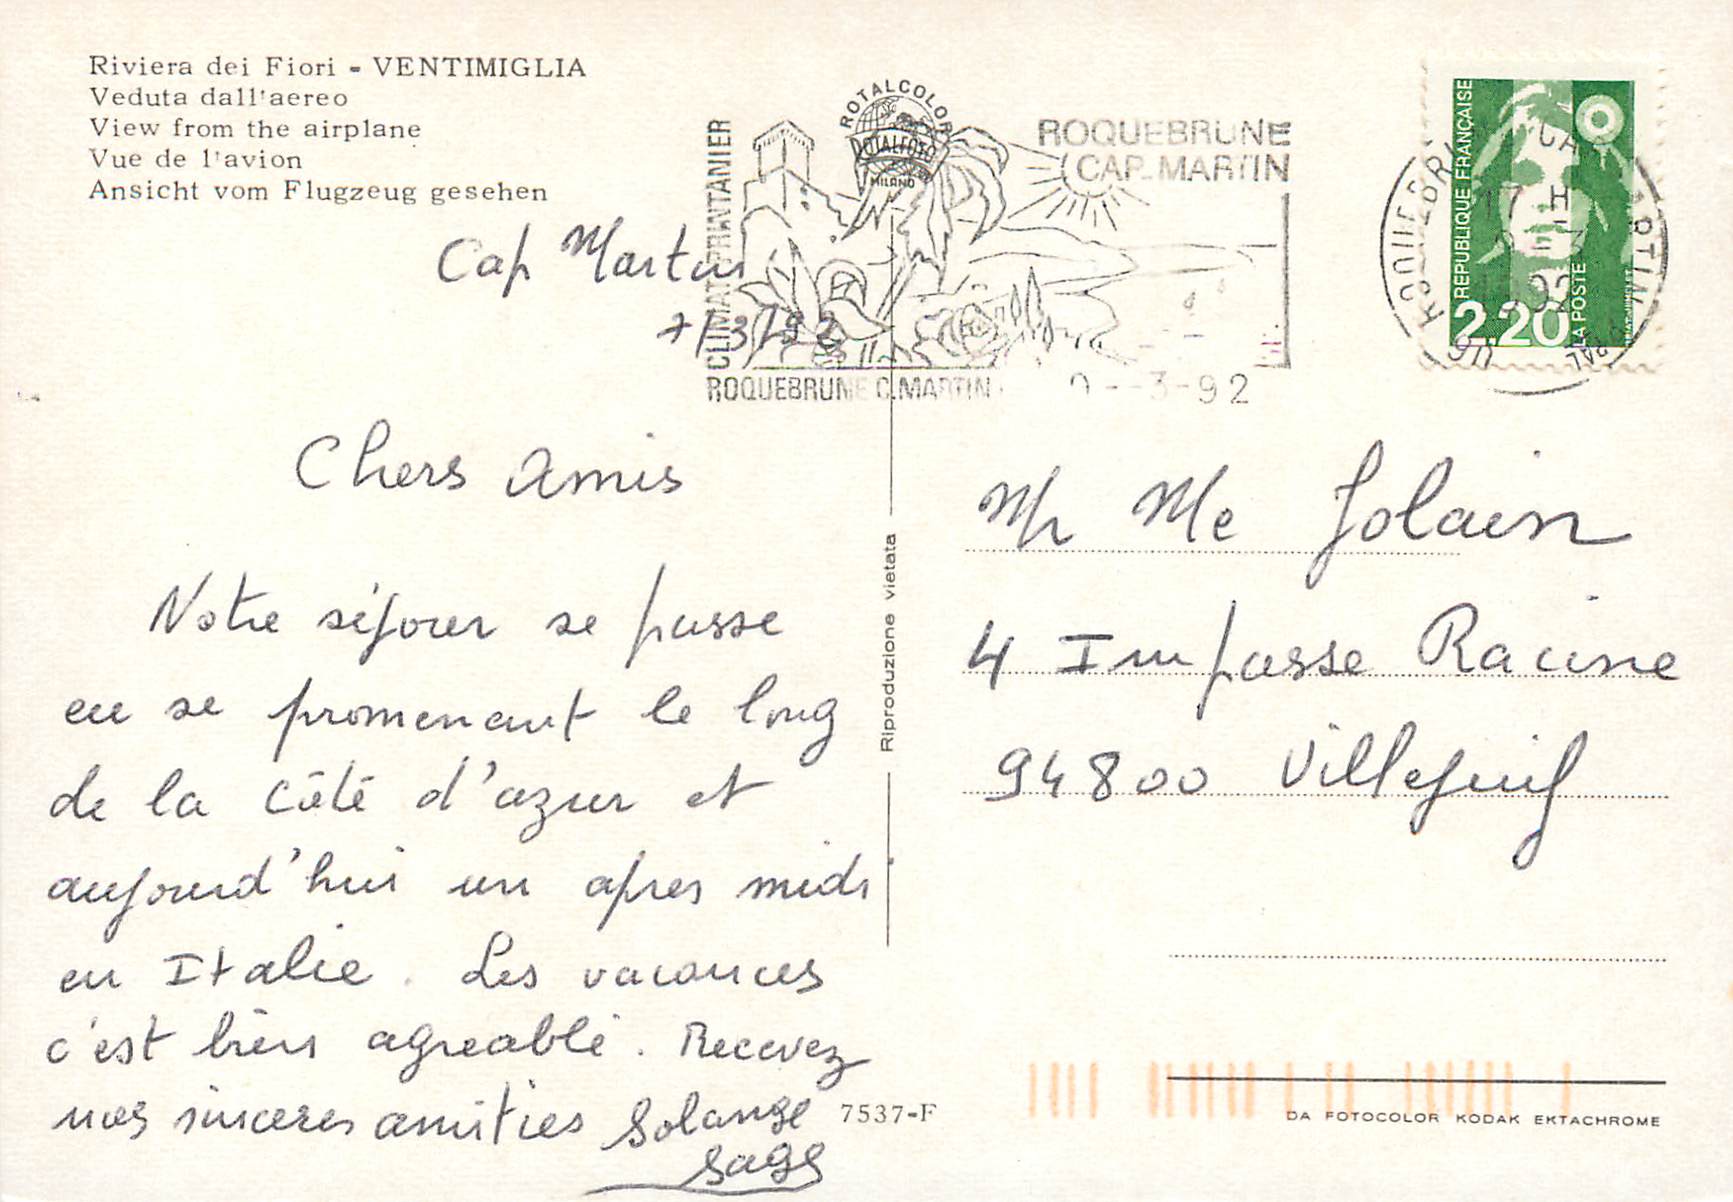 Riviera dei Fiori - VENTIMIGLIA
Veduta dall'aereo
View from the airplane
Vue de l'avion
Ansicht vom Flugzeug gesehen
ROTALCOLOR
ROTALFOTO
MILANO
CLIMAT PRINTANIER
ROQUEBRUNE
CAP-MARTIN
ROQUEBRUNE C.MARTIN
-3-92
REPUBLIQUE FRANÇAISE
LA POSTE
2,20
17 H
92
Cap Martin
7/3/92
Chers Amis
Notre séjour se passe
en se promenant le long
de la Côté d'azur et
aujourd'hui un apres midi
en Italie. Les vacances
c'est bien agreable. Recevez
nos sinceres amities Solange
Mr Me Jolain
4 Impasse Racine
94800 Villejuif
Riproduzione vietata
7537-F
DA FOTOCOLOR KODAK EKTACHROME